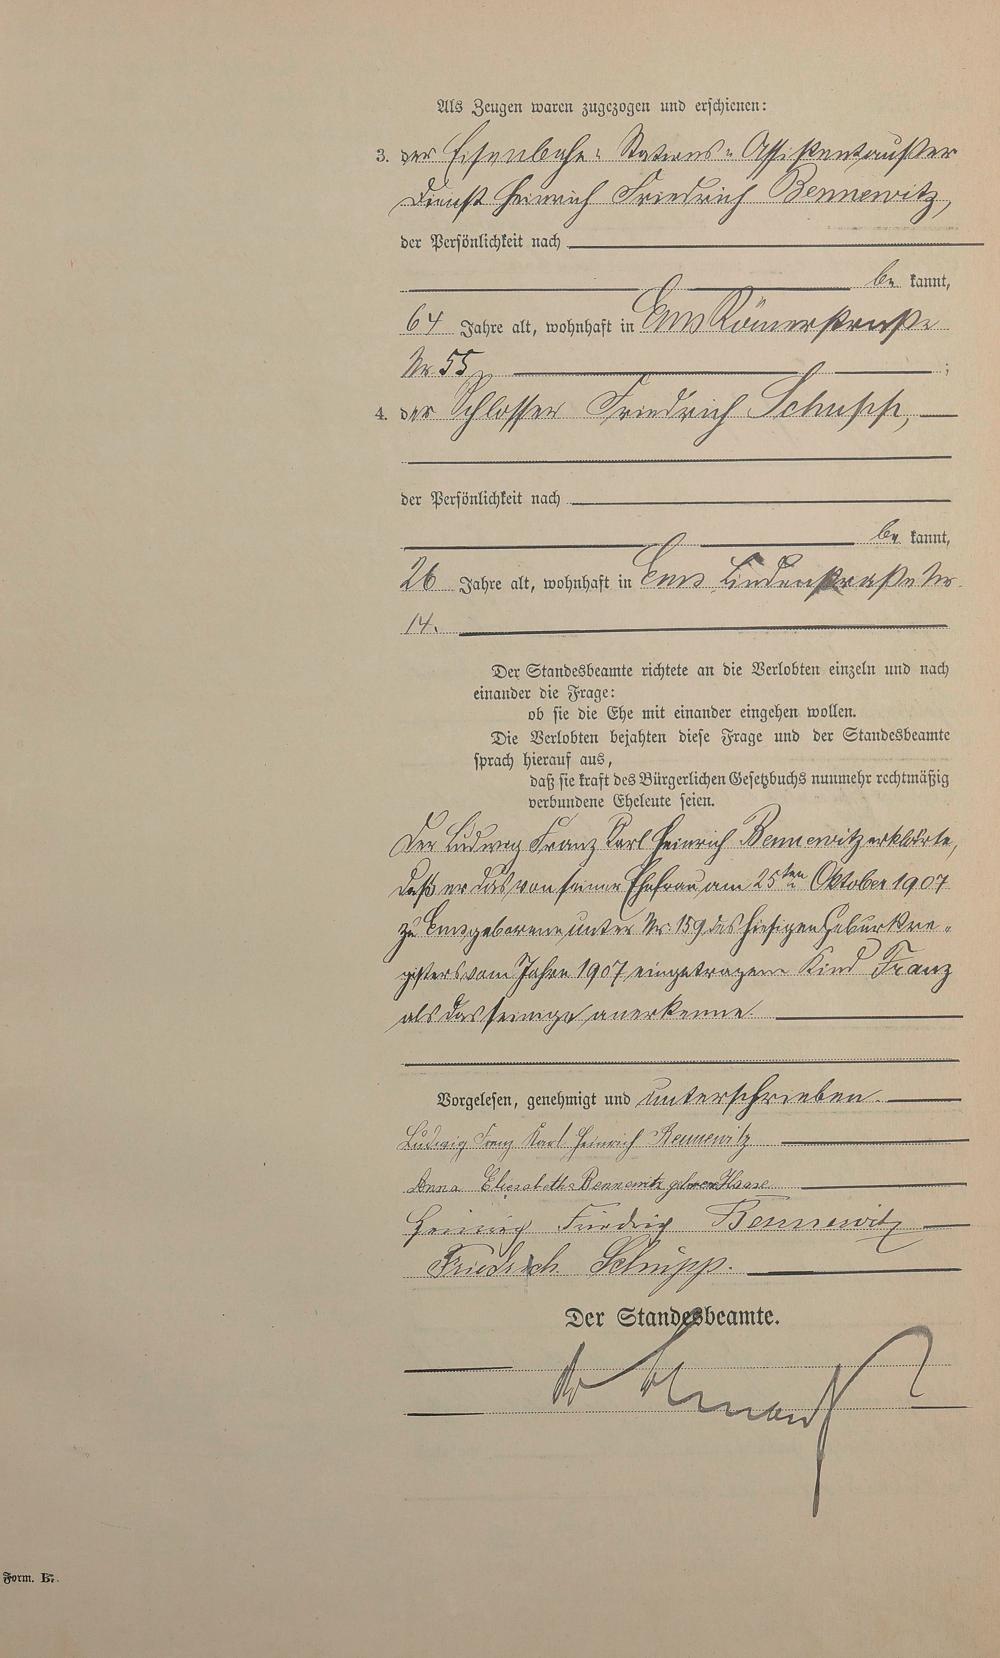 Als Zeugen waren zugezogen und erschienen:
3. der Eisenbahn-Stations-Assistent außer
Dienst Heinrich Friedrich Bennewitz,
der Persönlichkeit nach
be kannt,
64 Jahre alt, wohnhaft in Ems Römerstraße
Nr 55 ;
4. der Schlosser Friedrich Schupp,
der Persönlichkeit nach
be kannt,
26 Jahre alt, wohnhaft in Ems Lindenstraße Nr
14.
Der Standesbeamte richtete an die Verlobten einzeln und nach
einander die Frage:
ob sie die Ehe mit einander eingehen wollen.
Die Verlobten bejahten diese Frage und der Standesbeamte
sprach hierauf aus,
daß sie kraft des Bürgerlichen Gesetzbuchs nunmehr rechtmäßig
verbundene Eheleute seien.
Der Ludwig Franz Karl Heinrich Bennewitz erklärte,
daß er das von seiner Ehefrau am 25ten Oktober 1907
zu Ems geborene unter Nr. 159 des hiesigen Geburtsre-
gisters vom Jahre 1907 eingetragene Kind Franz
als das seinige anerkenne.
Vorgelesen, genehmigt und unterschrieben.
Ludwig Franz Karl Heinrich Bennewitz
Anna Elisabeth Bennewitz geborene Haase
Heinrich Friedrich Bennewitz
Friedrich Schupp.
Der Standesbeamte.
Form. B.